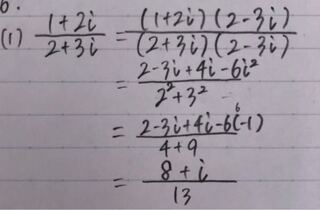 6.
(1) (1+2i)/(2+3i) = ((1+2i)(2-3i))/((2+3i)(2-3i))
= (2-3i+4i-6i²)/(2²+3²)
= (2-3i+4i-6(-1))/(4+9)
= (8+i)/13